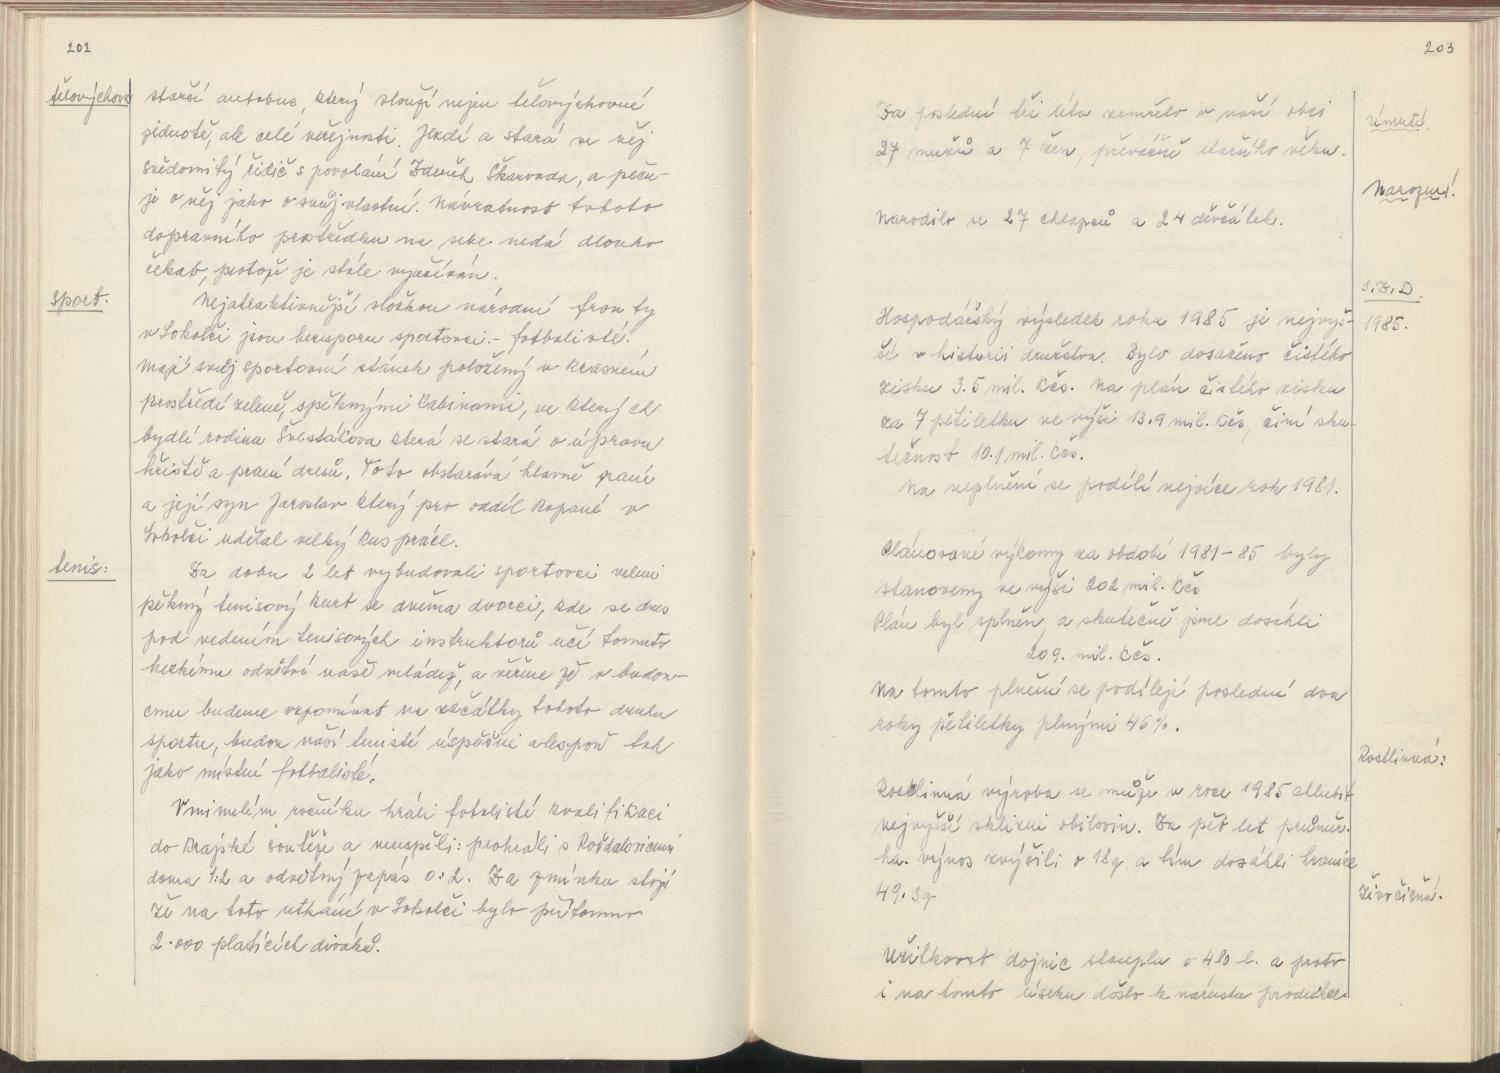 202
tělovýchova
starší autobus, který slouží nejen tělovýchovné
jednotě, ale celé veřejnosti. Jezdí a stará se něj
svědomitý řidič s povolání Zdeněk Škarvada, a peču-
je o něj jako o svůj vlastní. Návratnost tohoto
dopravního prostředku na sebe nedá dlouho
čekat, protože je stále využíván.
sport:
Nejatraktivnější složkou národní fronty
v Sokolči jsou bezesporu sportovci - fotbalisté.
Mají svůj sportovní stánek položený v krásném
prostředí zeleně, s pěknými kabinami, ve kterých
bydlí rodina Šustákova která se stará o úpravu
hřiště a praní dresů. Toto obstarává hlavně paní
a její syn Jaroslav který pro oddíl kopané v
Sokolči udělal velký kus práce.
tenis:
Za dobu 2 let vybudovali sportovci velmi
pěkný tenisový kurt se dvěma dvorci, kde se dnes
pod vedením tenisových instruktorů učí tomuto
hezkému odvětví naše mládež, a věříme že v budou-
cnu budeme vzpomínat na začátky tohoto druhu
sportu, budou naší tenisté úspěšní alespoň tak
jako místní fotbalisté.
V minulém ročníku hráli fotalisté kvalifikaci
do Krajské soutěže a neuspěli: prohráli s Rožďalovicemi
doma 1:2 a odvetný zápas 0:2. Za zmínku stojí
že na toto utkání v Sokolči bylo přítomno
2.000 platících diváků.
203
Za poslední tři léta zemřelo v naší obci
27 mužů a 7 žen, převážně staršího věku.
Úmrtí.
Narození.
Narodilo se 27 chlapců a 24 děvčátek.
J.Z.D.
1985.
Hospodářský výsledek roku 1985 je nejvyš-
ší v historii družstva. Bylo dosaženo čistého
zisku 3.5 mil. Kčs. Na plán čistého zisku
za 7 pětiletku ve výši 13.9 mil. Kčs, činí sku-
tečnost 10.1 mil. Kčs.
Na neplnění se podílí nejvíce rok 1981.
Plánované výkony za období 1981-85 byly
stanoveny ve výši 202 mil. Kčs
Plán byl splněn, a skutečně jsme dosáhli
209. mil. Kčs.
Na tomto plnění se podílejí poslední dva
roky pětiletky plnými 46%.
Rostlinná:
Rostlinná výroba se může v roce 1985 chlubit
nejvyšší sklizní obilovin. Za pět let průměr.
ha. výnos zvýšili o 18q a tím dosáhli hranice
49.3q
Živočišná.
Užitkovost dojnic stoupla o 480 l. a proto
i na tomto úseku došlo k nárustu produkce